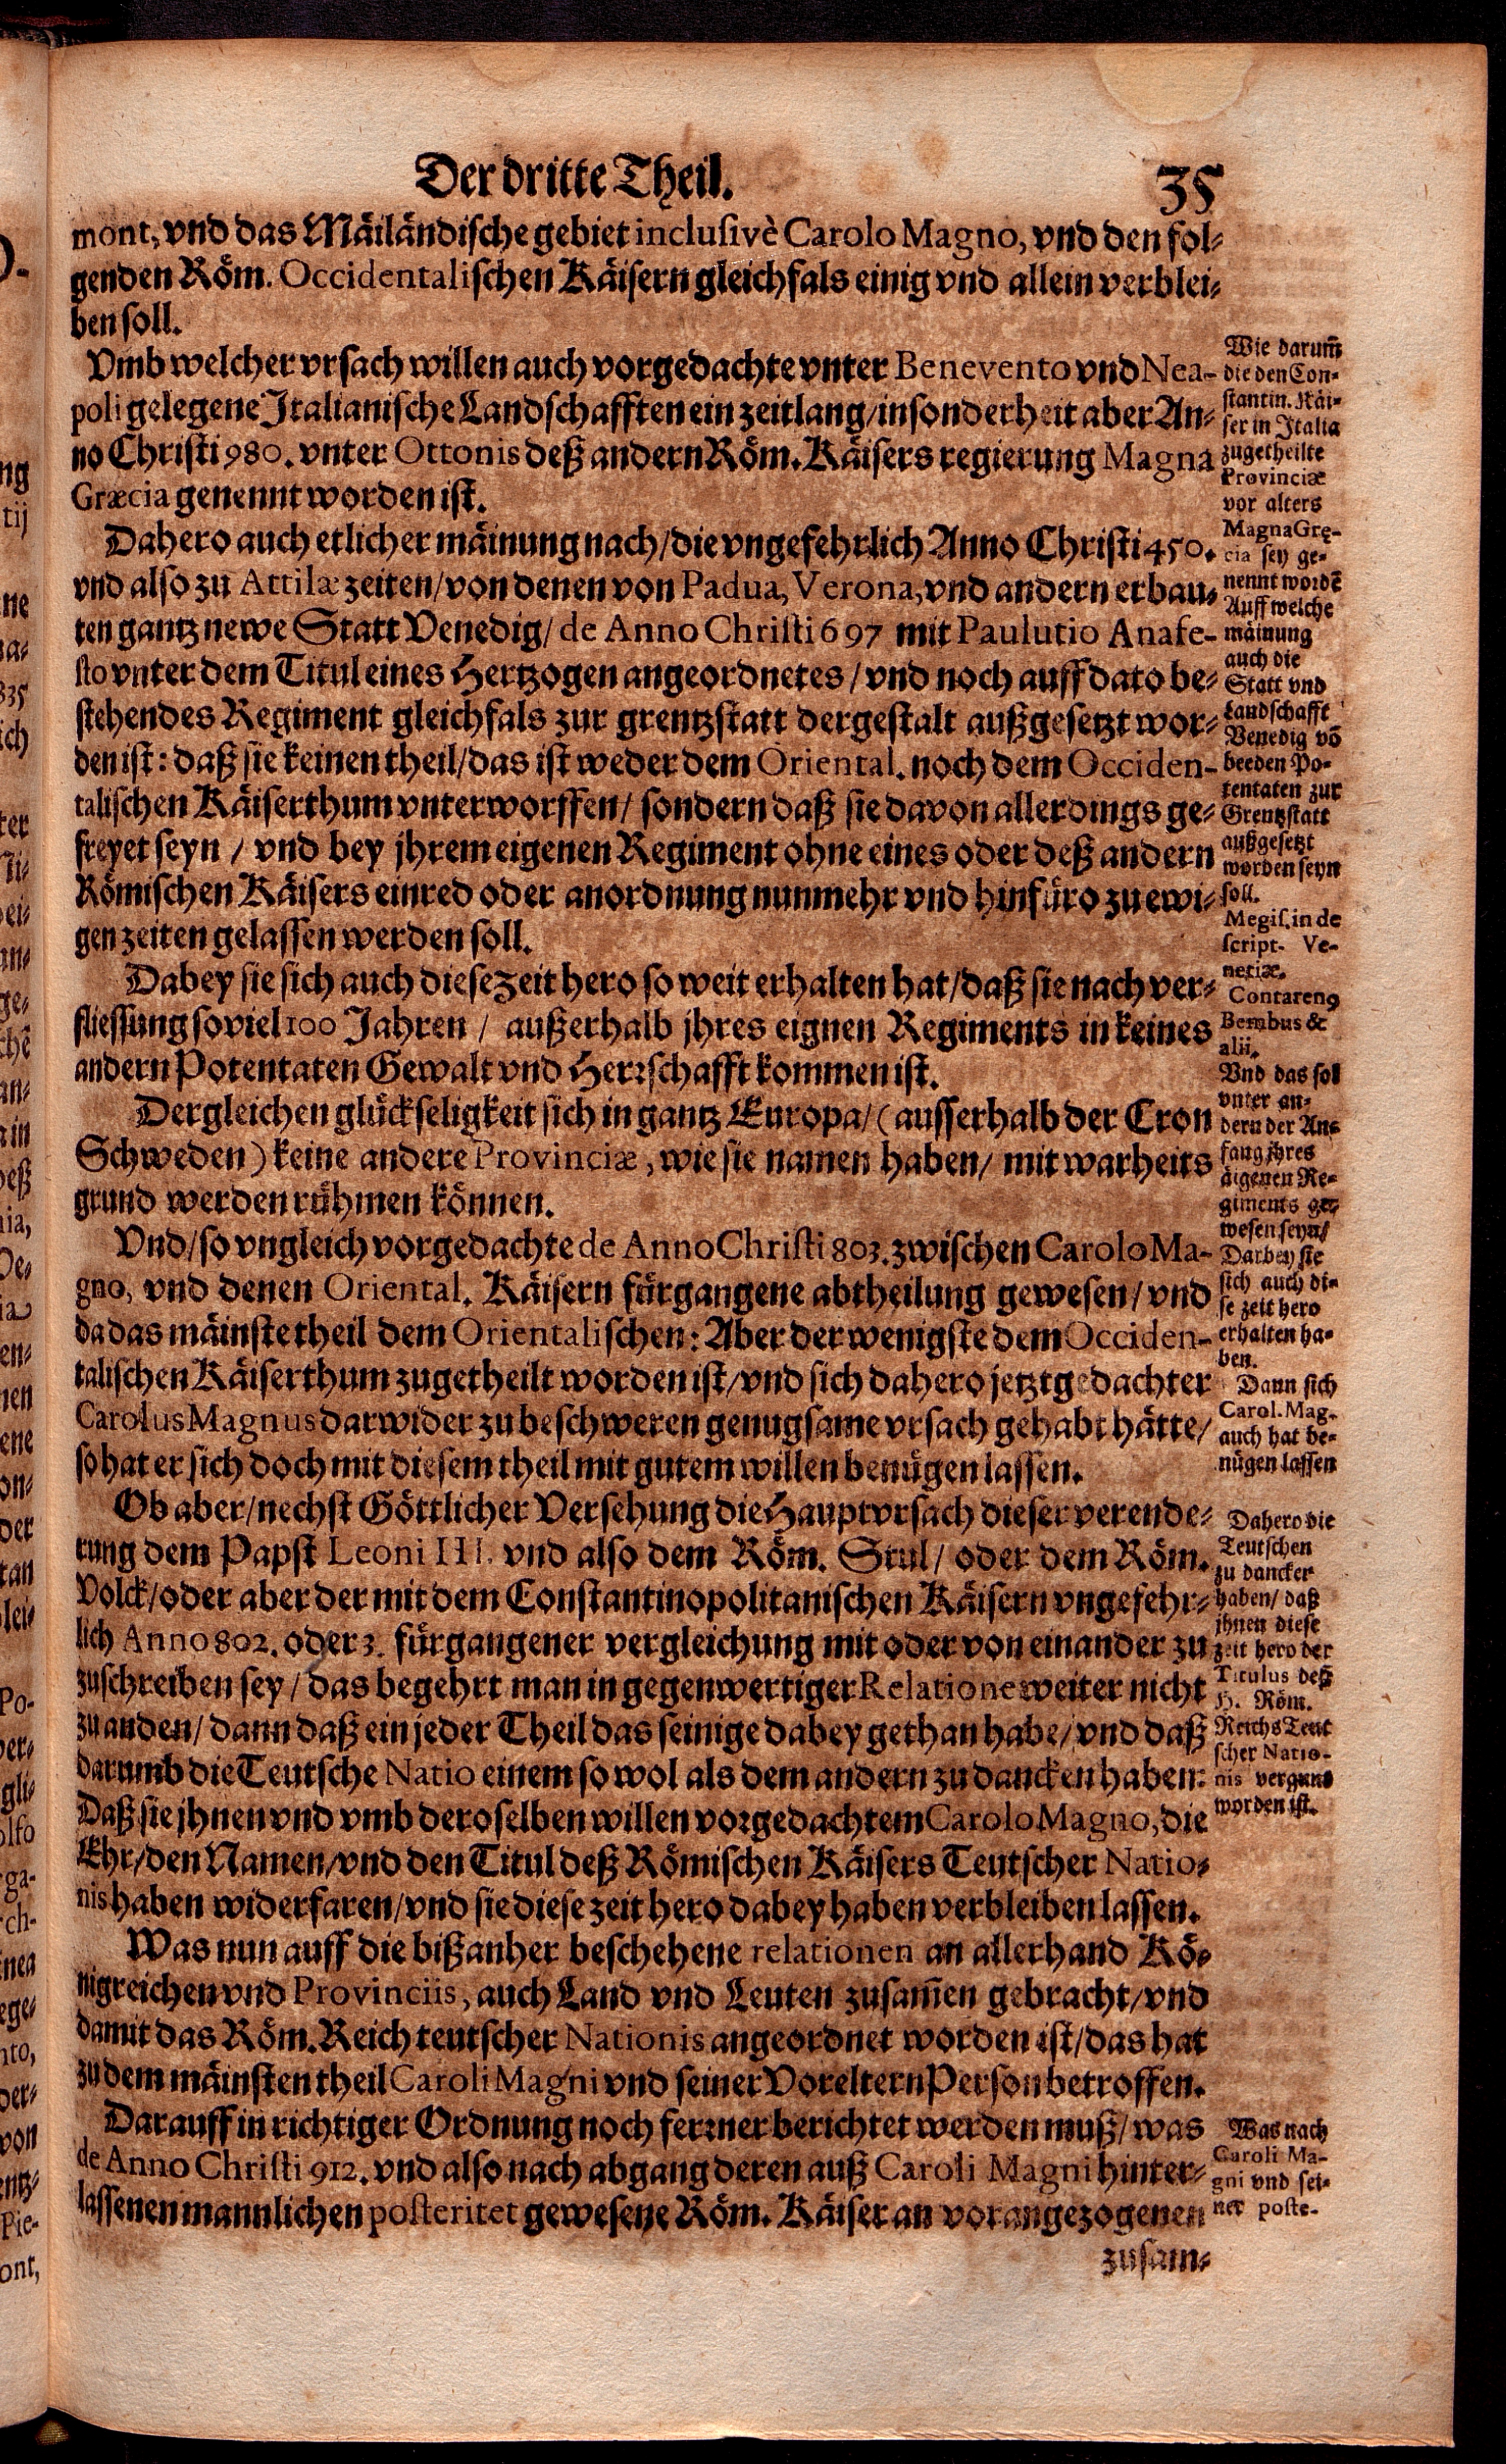 Der dritte Theil.
35
mont, vnd das Mäiländische gebiet inclusivè Carolo Magno, vnd den fol-
genden Röm. Occidentalischen Käisern gleichfals einig vnd allein verblei-
ben soll.
Vmb welcher vrsach willen auch vorgedachte vnter Benevento vnd Nea-
poli gelegene Italianische Landschafften ein zeitlang/ insonderheit aber An-
no Christi 980. vnter Ottonis deß andern Röm. Käisers regierung Magna
Græcia genennt worden ist.
Dahero auch etlicher mäinung nach/ die vngefehrlich Anno Christi 450.
vnd also zu Attilæ zeiten/ von denen von Padua, Verona, vnd andern erbau-
ten gantz newe Statt Venedig/ de Anno Christi 697 mit Paulutio Anafe-
sto vnter dem Titul eines Hertzogen angeordnetes/ vnd noch auff dato be-
stehendes Regiment gleichfals zur grentzstatt dergestalt außgesetzt wor-
den ist: daß sie keinen theil/ das ist weder dem Oriental. noch dem Occiden-
talischen Käiserthum vnterworffen/ sondern daß sie davon allerdings ge-
freyet seyn / vnd bey jhrem eigenen Regiment ohne eines oder deß andern
Römischen Käisers einred oder anordnung nunmehr vnd hinfüro zu ewi-
gen zeiten gelassen werden soll.
Dabey sie sich auch diese Zeit hero so weit erhalten hat/ daß sie nach ver-
fliessung soviel 100 Jahren / außerhalb jhres eignen Regiments in keines
andern Potentaten Gewalt vnd Herrschafft kommen ist.
Dergleichen glückseligkeit sich in gantz Europa/ (ausserhalb der Cron
Schweden) keine andere Provinciæ, wie sie namen haben/ mit warheits
grund werden rühmen können.
Vnd/ so vngleich vorgedachte de Anno Christi 803. zwischen Carolo Ma-
gno, vnd denen Oriental. Käisern fürgangene abtheilung gewesen/ vnd
da das mäinste theil dem Orientalischen: Aber der wenigste dem Occiden-
talischen Käiserthum zugetheilt worden ist/ vnd sich dahero jetztgedachter
Carolus Magnus darwider zu beschweren genugsame vrsach gehabt hätte/
so hat er sich doch mit diesem theil mit gutem willen benügen lassen.
Ob aber/ nechst Göttlicher Versehung die Hauptvrsach dieser verende-
rung dem Papst Leoni III. vnd also dem Röm. Stul/ oder dem Röm.
Volck/ oder aber der mit dem Constantinopolitanischen Käisern vngefehr-
lich Anno 802. oder 3. fürgangener vergleichung mit oder von einander zu
zuschreiben sey/ das begehrt man in gegenwertiger Relatione weiter nicht
zu anden/ dann daß ein jeder Theil das seinige dabey gethan habe/ vnd daß
darumb die Teutsche Natio einem so wol als dem andern zu dancken haben:
Daß sie jhnen vnd vmb deroselben willen vorgedachtem Carolo Magno, die
Ehr/ den Namen/ vnd den Titul deß Römischen Käisers Teutscher Natio-
nis haben widerfaren/ vnd sie diese zeit hero dabey haben verbleiben lassen.
Was nun auff die bißanher beschehene relationen an allerhand Kö-
nigreichen vnd Provinciis, auch Land vnd Leuten zusam̃en gebracht/ vnd
damit das Röm. Reich teutscher Nationis angeordnet worden ist/ das hat
zu dem mäinsten theil Caroli Magni vnd seiner Voreltern Person betroffen.
Darauff in richtiger Ordnung noch ferrner berichtet werden muß/ was
de Anno Christi 912. vnd also nach abgang deren auß Caroli Magni hinter-
lassenen mannlichen posteritet gewesene Röm. Käiser an vorangezogenen
zusam-
Wie darum̃
die den Con-
stantin. Käi-
ser in Italia
zugetheilte
Provinciæ
vor alters
Magna Gręcia
cia sey ge-
nennt wordẽ
Auff welche
mäinung
auch die
Statt vnd
Landschafft
Venedig võ
beeden Po-
tentaten zur
Grentzstatt
außgesetzt
worden seyn
soll.
Megis. in de
script. Ve-
netiæ.
Contareng
Bembus &
alii.
Vnd das sol
vnter an-
dern der An-
fang jhres
äigenen Re-
giments ge-
wesen seyn/
Darbey sie
sich auch di-
se zeit hero
erhalten ha-
ben.
Dann sich
Carol. Mag.
auch hat be-
nügen lassen
Dahero die
Teutschen
zu dancken
haben/ daß
jhnen diese
zeit hero der
Titulus deß
H. Röm.
Reichs Teut
scher Natio-
nis vergunt
worden ist.
Was nach
Caroli Ma-
gni vnd sei-
ner poste-